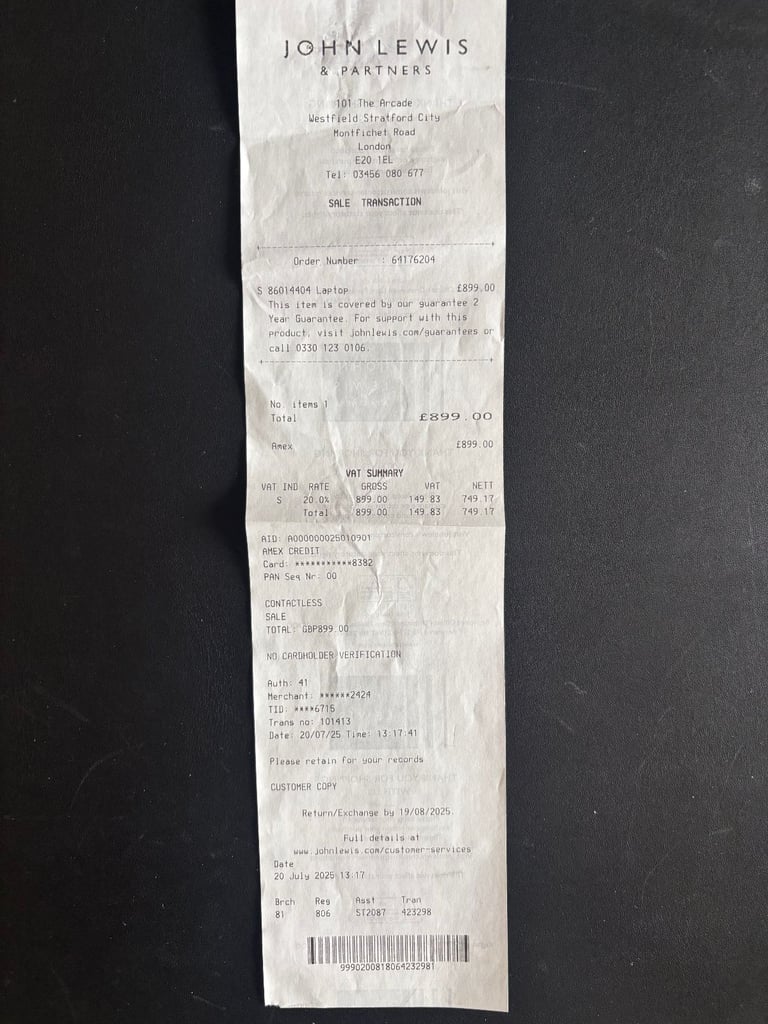 JOHN LEWIS
& PARTNERS
101 The Arcade
Westfield Stratford City
Montfichet Road
London
E20 1EL
Tel: 03456 080 677
SALE TRANSACTION
Order Number : 64176204
S 86014404 Laptop £899.00
This item is covered by our guarantee 2
Year Guarantee. For support with this
product, visit johnlewis.com/guarantees or
call 0330 123 0106.
No. items 1
Total £899.00
Amex £899.00
VAT SUMMARY
VAT IND RATE GROSS VAT NETT
S 20.0% 899.00 149.83 749.17
Total 899.00 149.83 749.17
AID: A000000025010901
AMEX CREDIT
Card: ***********8382
PAN Seq Nr: 00
CONTACTLESS
SALE
TOTAL: GBP899.00
NO CARDHOLDER VERIFICATION
Auth: 41
Merchant: ******2424
TID: ****6715
Trans no: 101413
Date: 20/07/25 Time: 13:17:41
Please retain for your records
CUSTOMER COPY
Return/Exchange by 19/08/2025.
Full details at
www.johnlewis.com/customer-services
Date
20 July 2025 13:17
Brch Reg Asst Tran
81 806 ST2087 423298
9990200818064232981